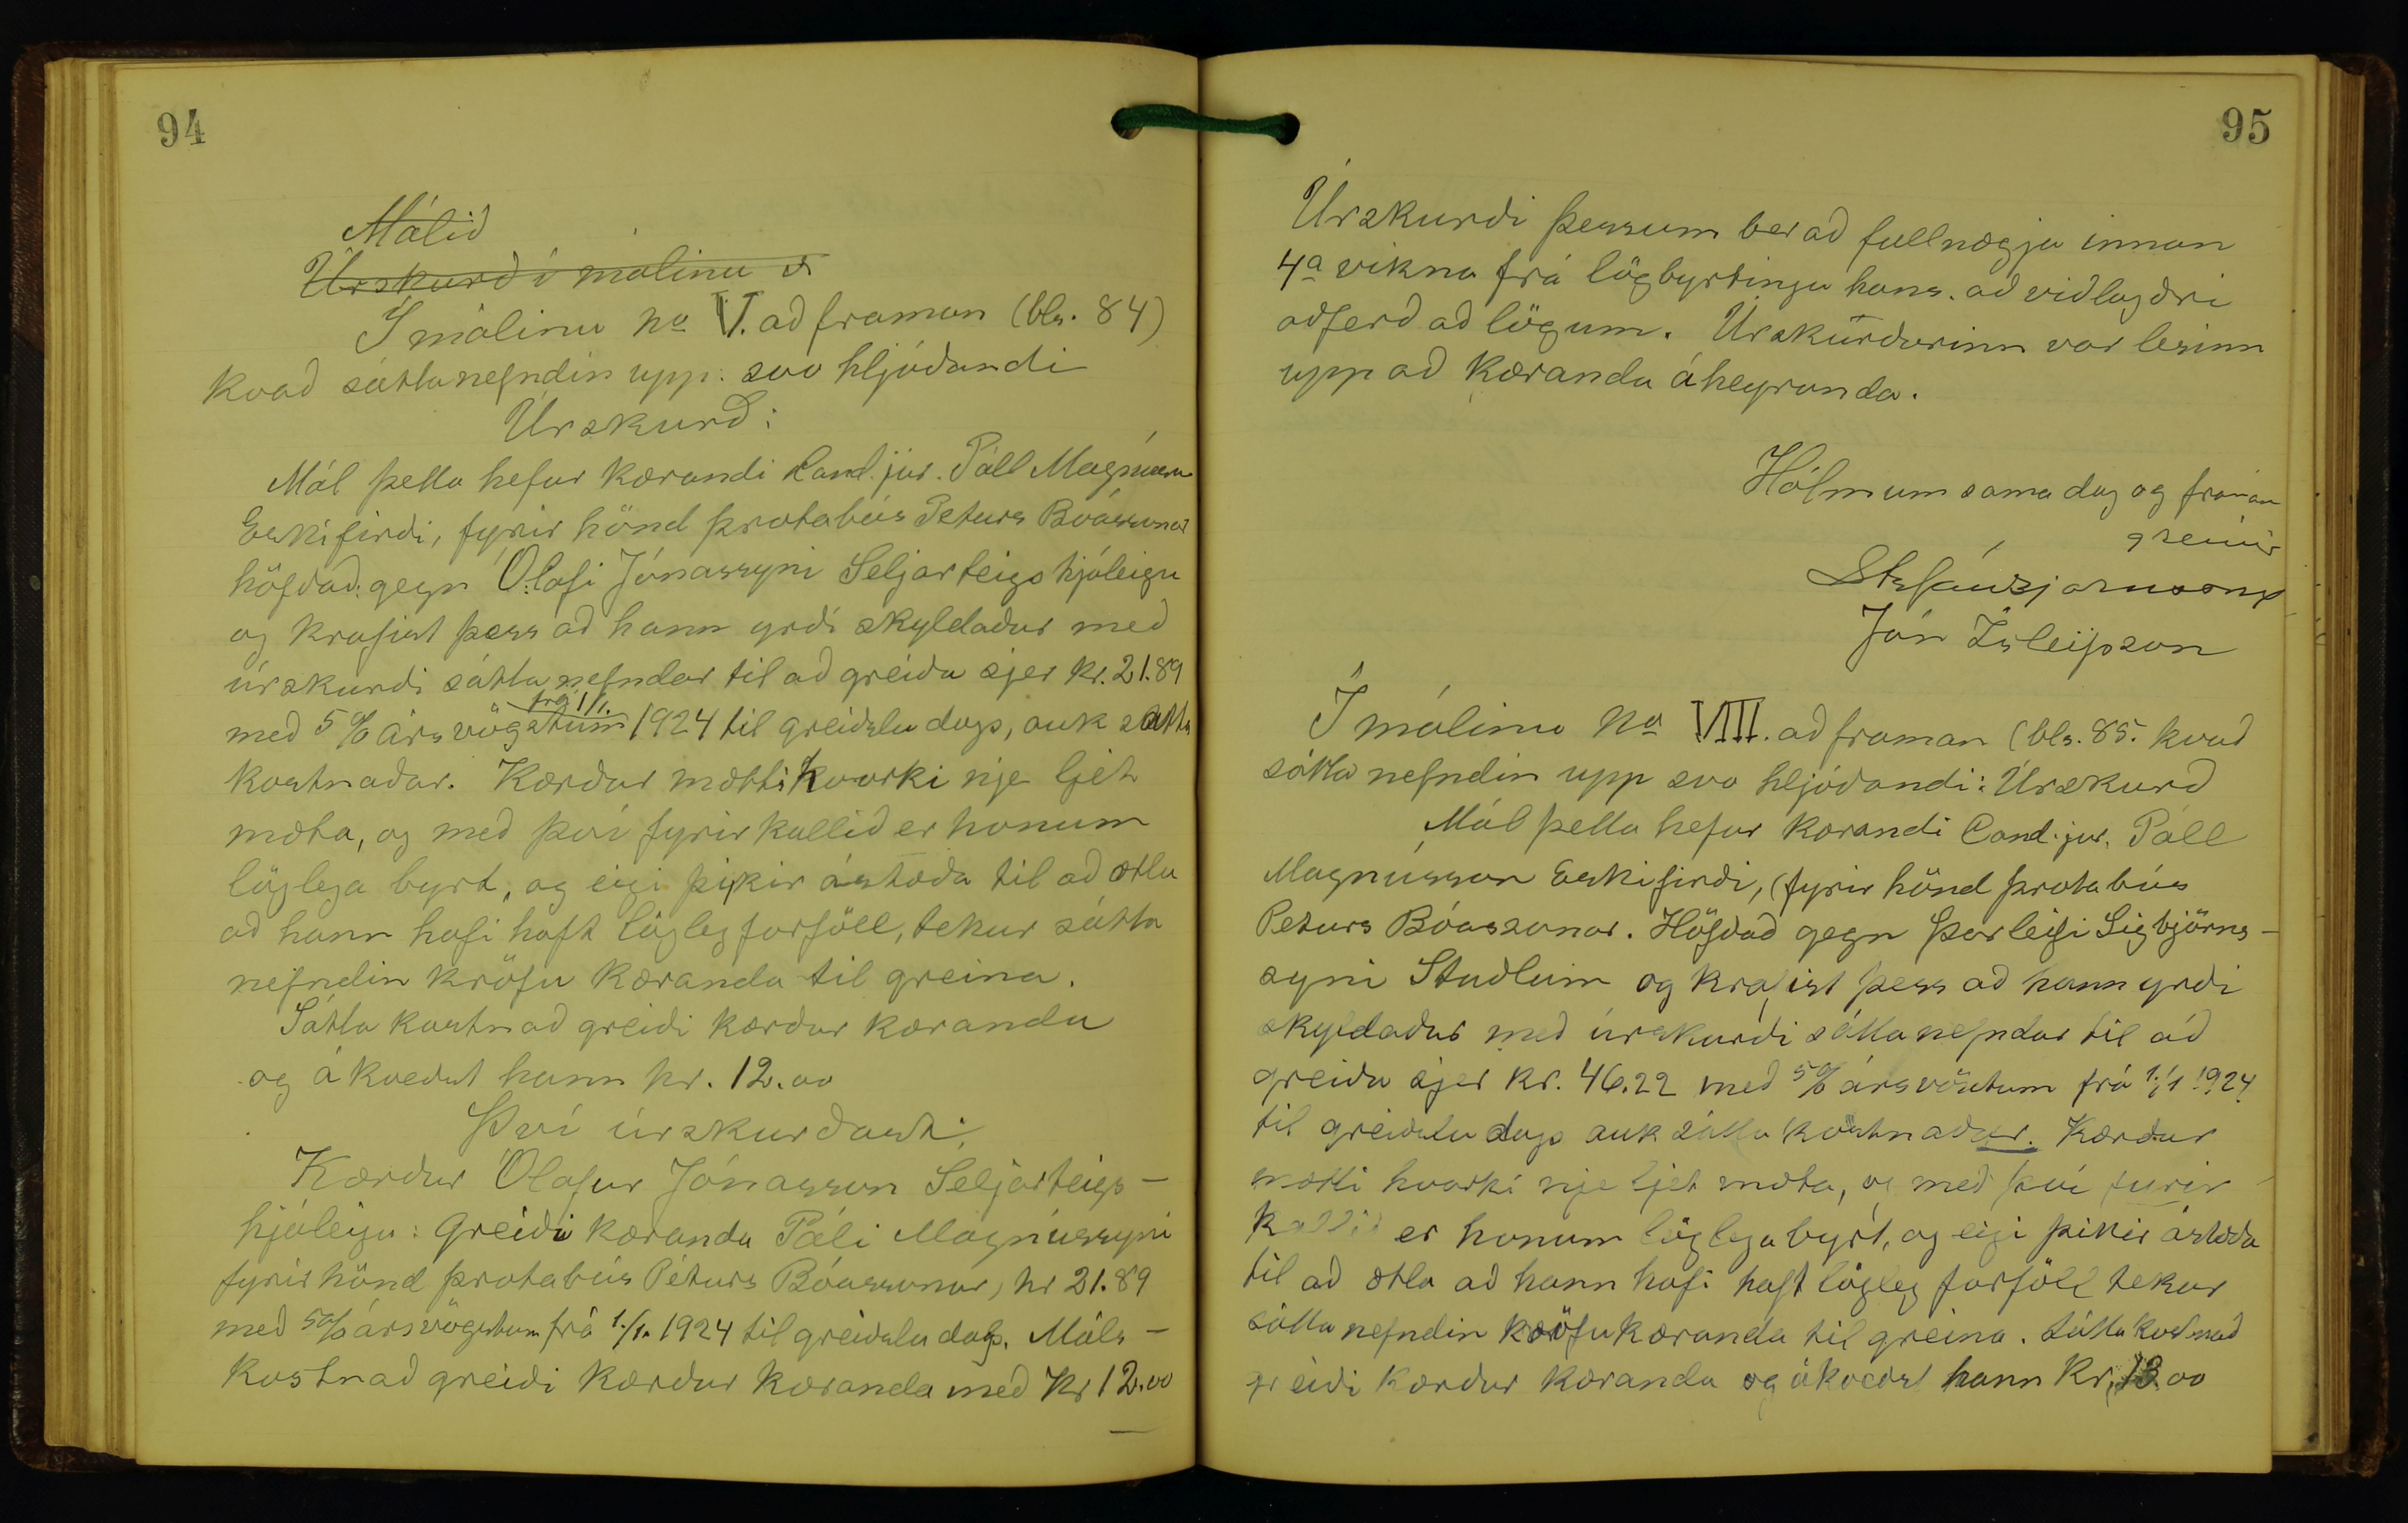 94
Málið
Úrskurð í málinu
Í málinu No V. að framan (bls. 84)
kvað sáttanefndin upp: svo hljóðandi
Úrskurð:
Mál þetta hefur kærandi Cand. jur. Páll Magnússon
Eskifirði, fyrir hönd þrotabús Peturs Bóassonar
höfðað gegn Ólafi Jónassyni Seljarteigshjáleigu
og krafist þess að hann yrði skyldaður með
úrskurði sáttanefndar til að greiða sjer kr. 21.89
með 5% ársvögstum frá 1/1. 1924 til greiðsludags, auk sátta
kostnaðar. Kærður mætti hvorki nje ljet
mæta, og með því fyrirkallið er honum
löglega byrt, og eigi þikir ástæða til að ætla
að hann hafi haft lögleg forföll, tekur sátta
nefndin kröfu kæranda til greina.
Sátta kostnað greiði kærður kæranda
og ákveðst hann kr. 12.00
Því úrskurðast:
Kærður Ólafur Jónasson Seljarteigs-
hjáleigu: Greiði kæranda Páli Magnússyni
fyrir hönd þrotabús Péturs Bóassonar, kr 21.89
með 5% ársvögstum frá 1./1. 1924 til greiðsludags. Máls-
kostnað greiði kærður kæranda með Kr 12.00
95
Úrskurði þessum ber að fullnægja innan
4a vikna frá lögbyrtingu hans. að viðlagðri
aðferð að lögum. Úrskurðurinn var lesinn
upp að kæranda áheyranda.
Hólmum sama dag og framan
greinir
Stefán Bjarnason
Jón Ísleifsson
Í málinu No VIII. að framan (bls. 85. kvað
sáttanefndin upp svo hljóðandi: Úrskurð
Mál þetta hefur kærandi Cand. jur. Páll
Magnússon Eskifirði, (fyrir hönd þrotabús
Peturs Bóassonar. Höfðað gegn Þorleifi Sigbjörns-
syni Stuðlum og krafist þess að hann yrði
skyldaður með úrskurði sáttanefndar til að
greiða sjer kr. 46.22 með 5% ársvöxtum frá 1./1 1924
til greiðsludags auk sátta kostnaðar. Kærður
mætti hvorki nje ljet mæta, og með því fyrir
kallið er honum löglega byrt, og eigi þikir ástæða
til að ætla að hann hafi haft lögleg forföll tekur
sáttanefndin kröfu kæranda til greina. Sátta kostnað
greiði kærður kæranda og ákveðst hann Kr. 13.00